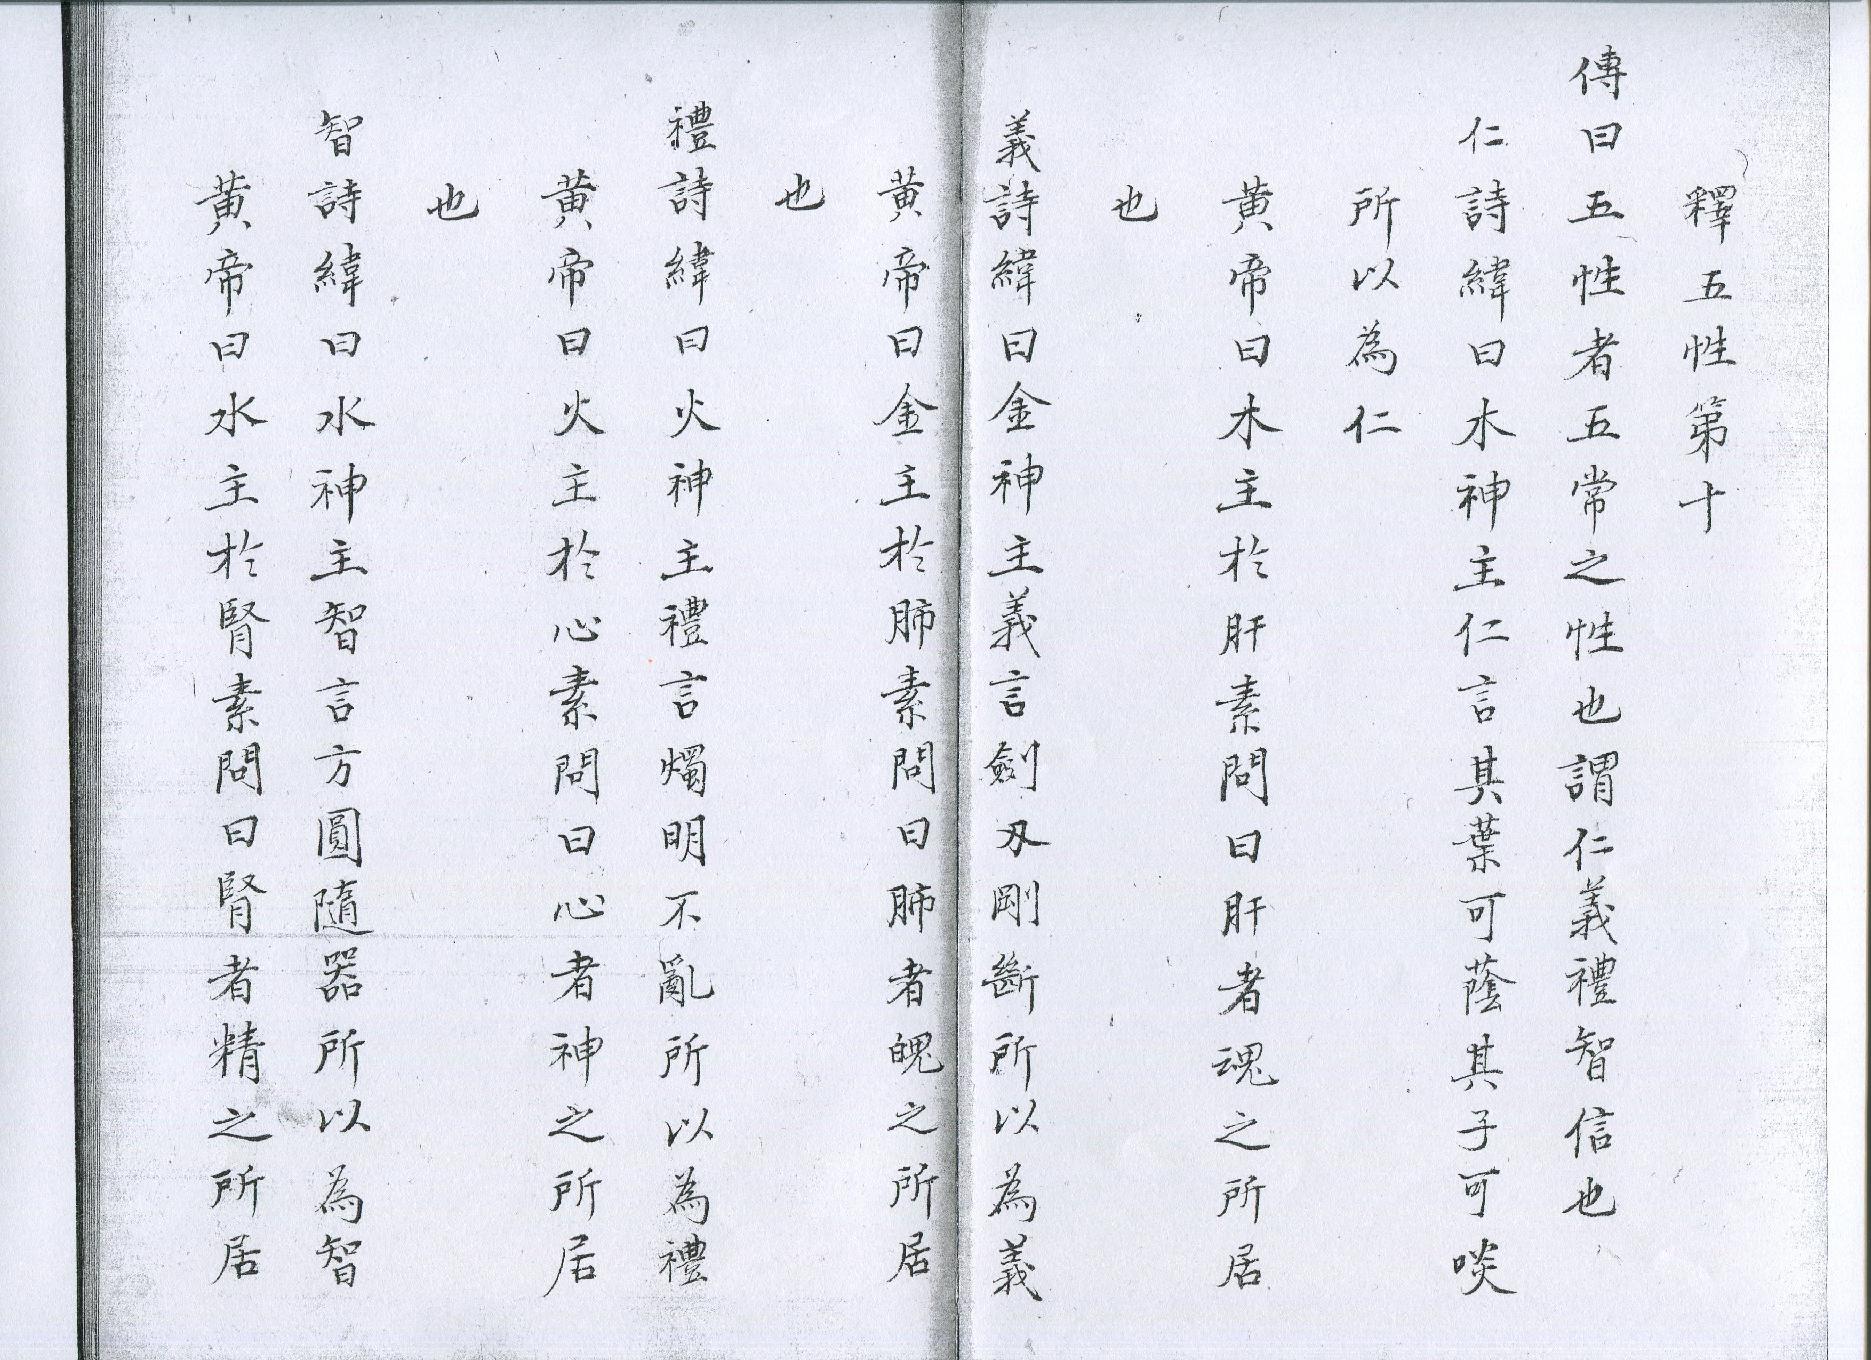 釋五性第十
傳曰五性者五常之性也謂仁義禮智信也
仁詩緯曰木神主仁言其葉可蔭其子可啖
所以為仁
黄帝曰木主於肝素問曰肝者魂之所居
也
義詩緯曰金神主義言劍刃剛斷所以為義
黄帝曰金主於肺素問曰肺者魄之所居
也
禮詩緯曰火神主禮言燭明不亂所以為禮
黄帝曰火主於心素問曰心者神之所居
也
智詩緯曰水神主智言方圓隨器所以為智
黄帝曰水主於腎素問曰腎者精之所居